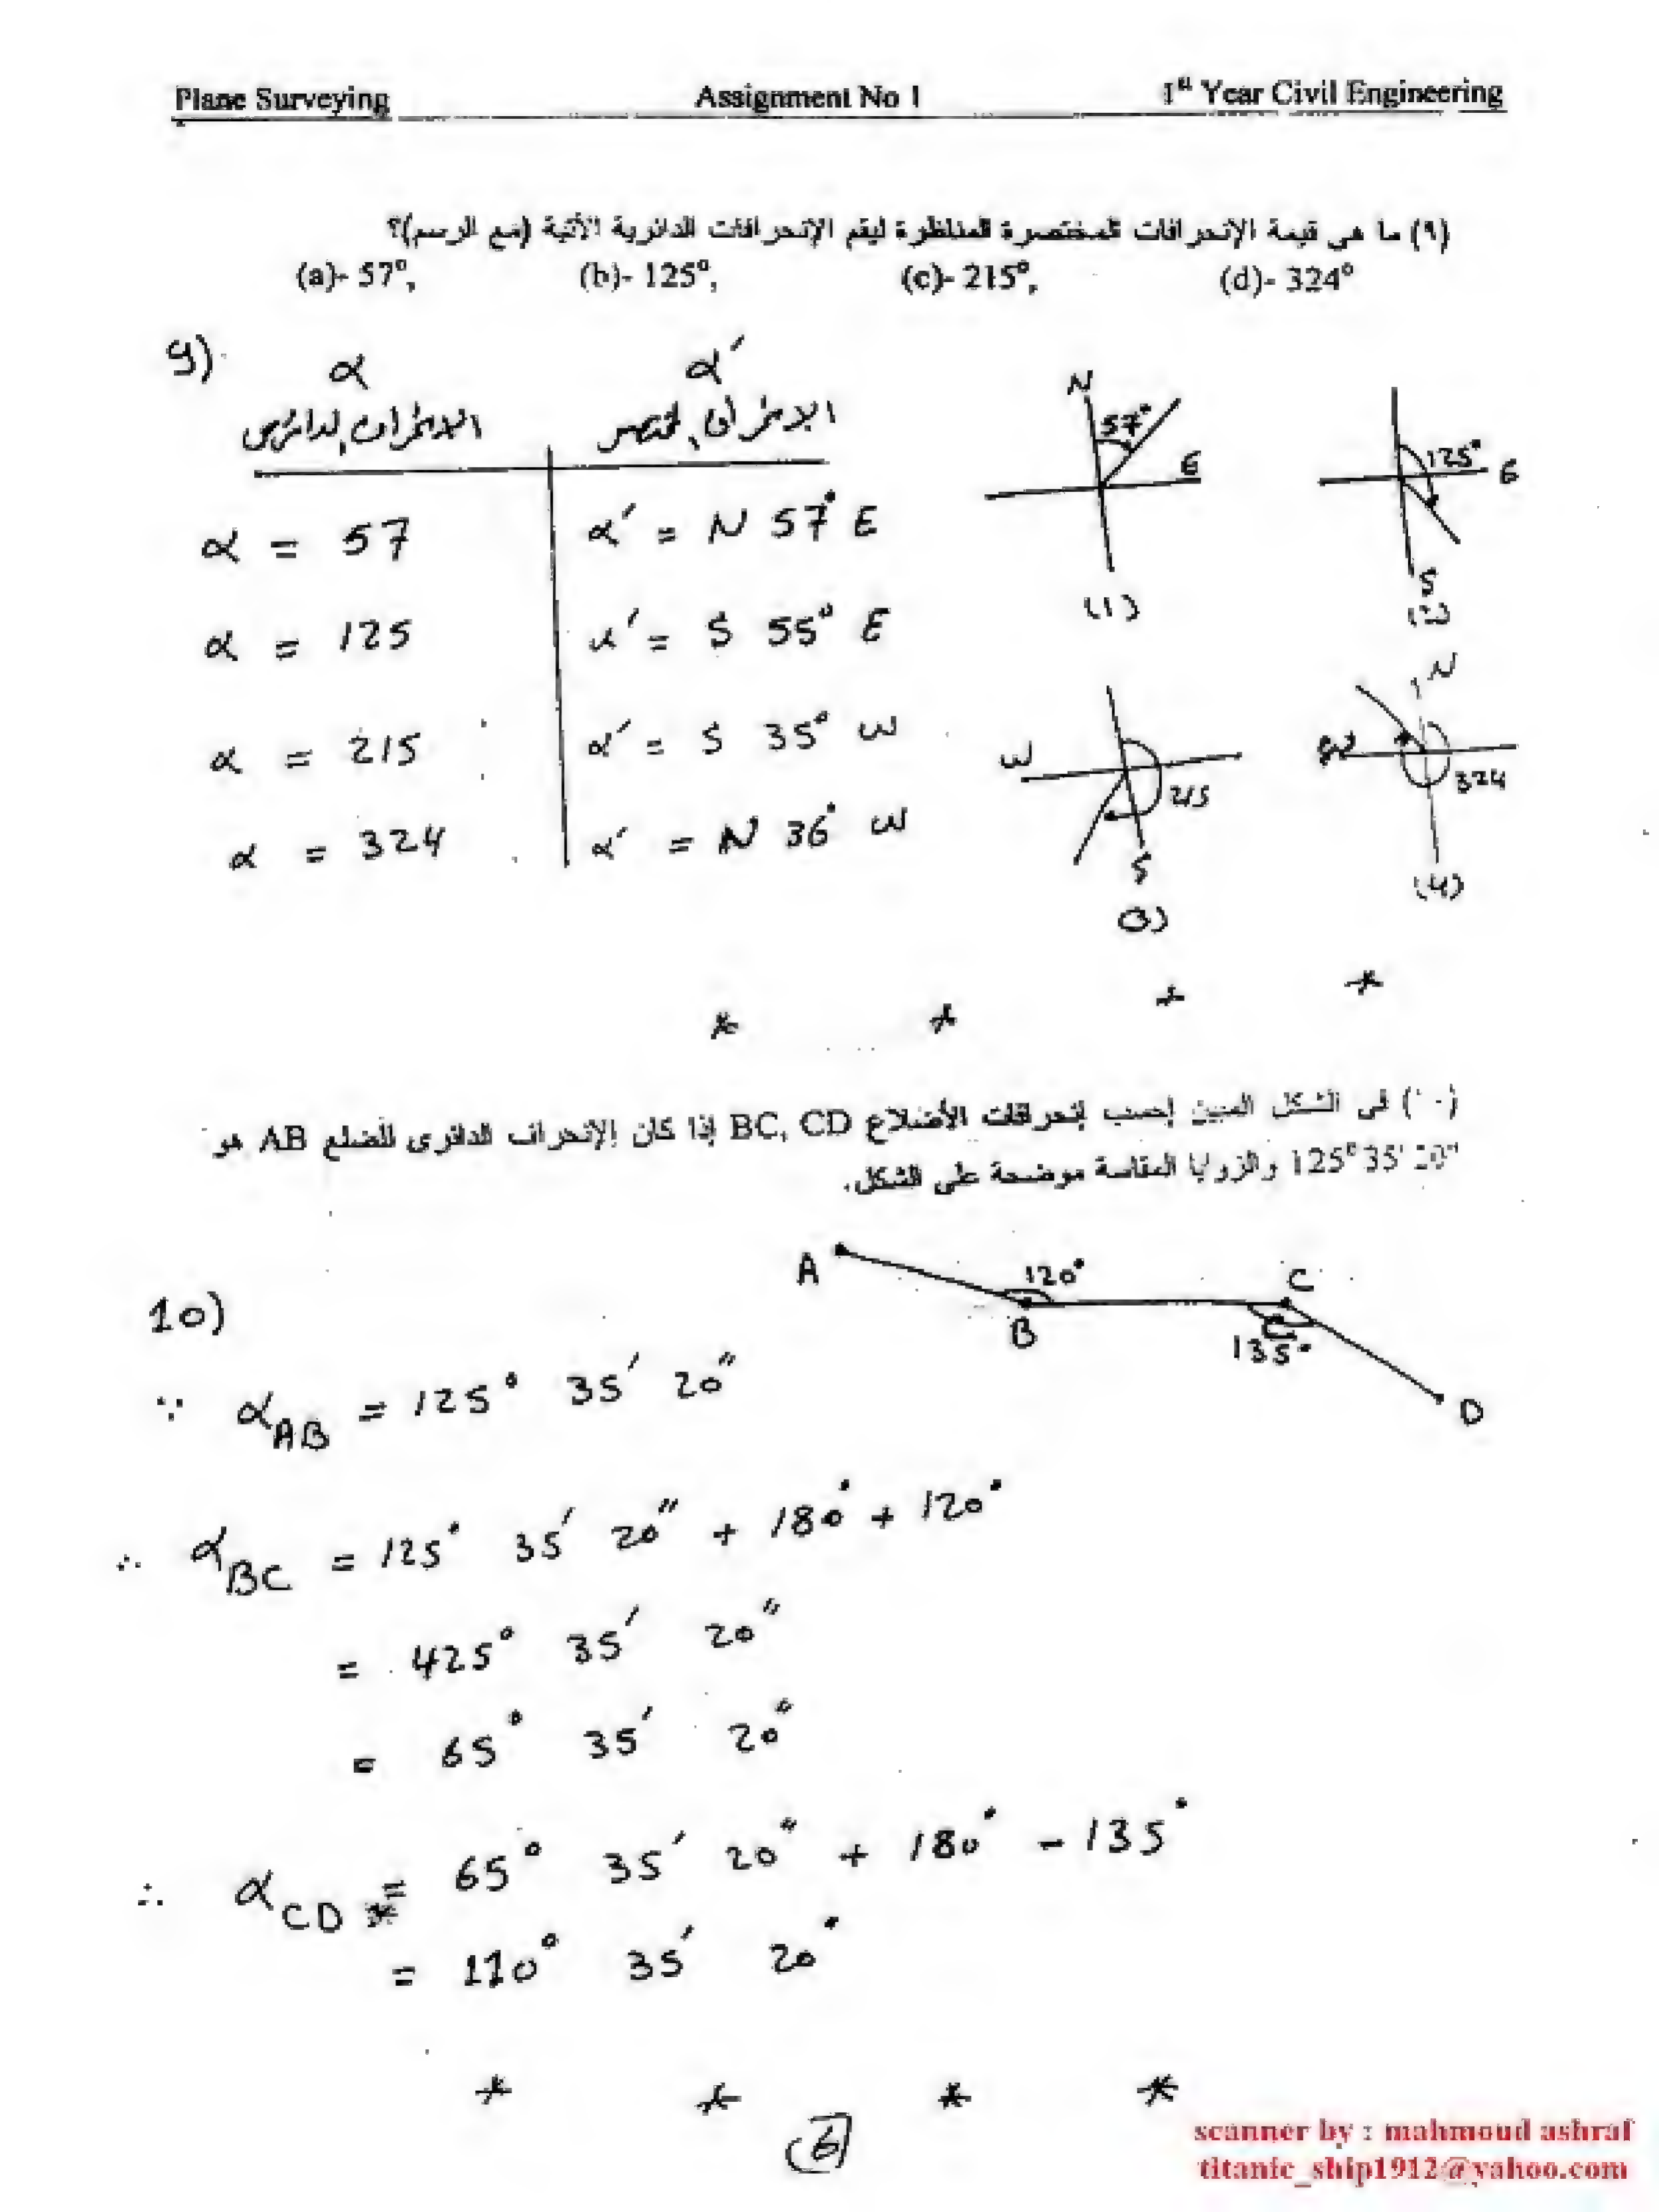 Plane Surveying Assignment No 1 1st Year Civil Engineering
(٩) ما هي قيمة الإنحرافات المختصرة المناظرة ليقم الإنحرافات الدائرية الأتية (مع الرسم)؟
(a)- 57°, (b)- 125°, (c)- 215°, (d)- 324°
9)
α α′
الانحراف الدائرى الانحراف المختصر
α = 57 α′ = N 57° E
α = 125 α′ = S 55° E
α = 215 α′ = S 35° W
α = 324 α′ = N 36° W
N 57° E
(1)
125° E
S
(2)
W 215
S
(3)
N
W 324
(4)
* * * *
(١٠) فى الشكل المبين إحسب إنحرافات الأضلاع BC, CD إذا كان الإنحراف الدائرى للضلع AB هو
125° 35' 20" والزوايا المقاسة موضحة على الشكل.
A 120° C
B 135°
D
10)
∵ αAB = 125° 35′ 20″
∴ αBC = 125° 35′ 20″ + 180° + 120°
= 425° 35′ 20″
= 65° 35′ 20″
∴ αCD = 65° 35′ 20″ + 180° - 135°
= 110° 35′ 20″
* * * *
(6)
scanner by : mahmoud ashraf
titanic_ship1912@yahoo.com